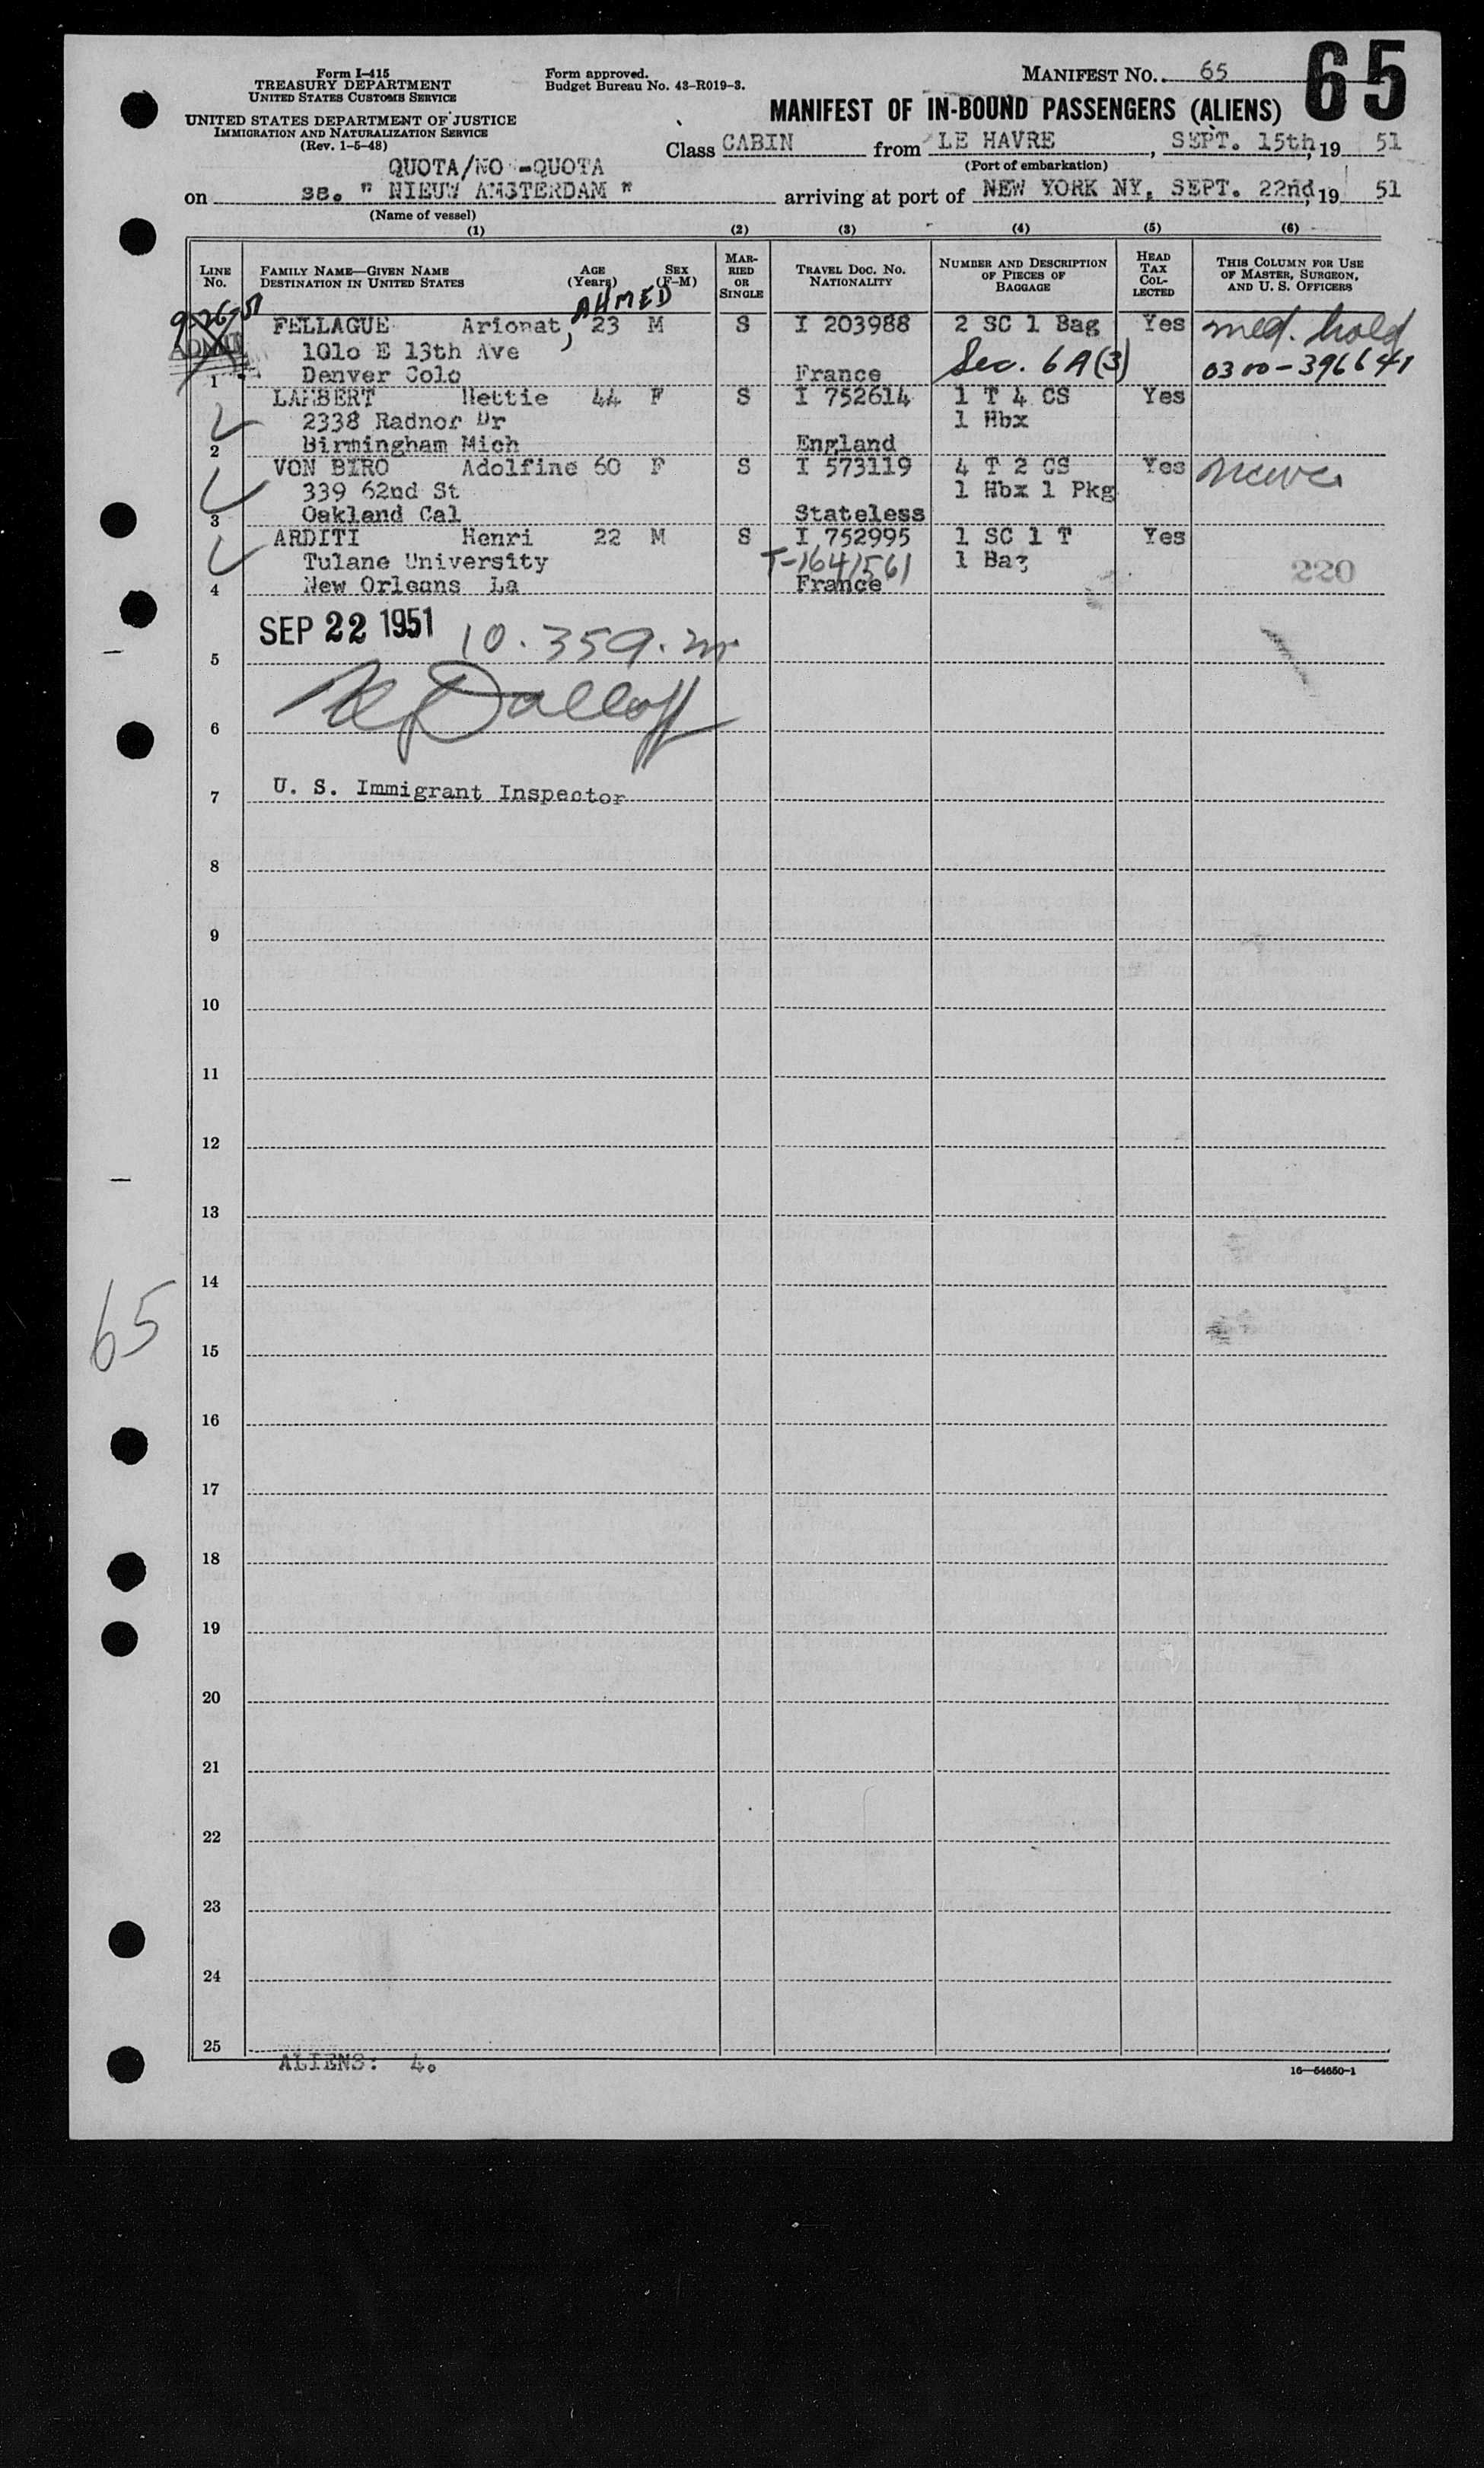 Form I-415
TREASURY DEPARTMENT
UNITED STATES CUSTOMS SERVICE
UNITED STATES DEPARTMENT OF JUSTICE
IMMIGRATION AND NATURALIZATION SERVICE
(Rev. 1-5-48)
Form approved.
Budget Bureau No. 43-R019-3.
MANIFEST NO. 65
65
MANIFEST OF IN-BOUND PASSENGERS (ALIENS)
Class CABIN from LE HAVRE, SEPT. 15th, 19 51
(Port of embarkation)
QUOTA/NO -QUOTA
on ss. " NIEUW AMSTERDAM " arriving at port of NEW YORK NY, SEPT. 22nd, 19 51
(Name of vessel)
(1) (2) (3) (4) (5) (6)
LINE NO. FAMILY NAME—GIVEN NAME DESTINATION IN UNITED STATES AGE (Years) SEX (F-M) MARRIED OR SINGLE TRAVEL DOC. NO. NATIONALITY NUMBER AND DESCRIPTION OF PIECES OF BAGGAGE HEAD TAX COLLECTED THIS COLUMN FOR USE OF MASTER, SURGEON, AND U. S. OFFICERS
9-26-51 AHMED
FELLAGUE Arionat, 23 M S I 203988 2 SC 1 Bag Yes med. hold
1010 E 13th Ave Sec. 6A(3) 0300-396641
1 Denver Colo France
LAMBERT Hettie 44 F S I 752614 1 T 4 CS Yes
2338 Radnor Dr 1 Hbx
2 Birmingham Mich England
VON BIRO Adolfine 60 F S I 573119 4 T 2 CS Yes
339 62nd St 1 Hbx 1 Pkg
3 Oakland Cal Stateless
ARDITI Henri 22 M S I 752995 1 SC 1 T Yes
Tulane University T-1641561 1 Bag 220
4 New Orleans La France
SEP 22 1951 10.359.
5
6
7 U. S. Immigrant Inspector
8
9
10
11
12
13
14
65
15
16
17
18
19
20
21
22
23
24
25
ALIENS: 4.
16—54650-1